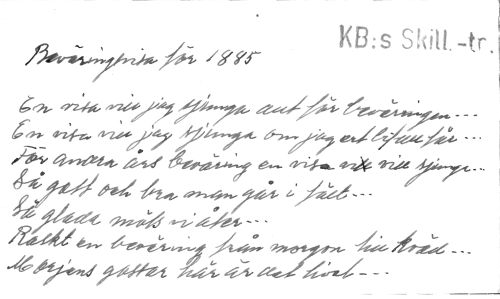 KB:s Skill.-tr.
Beväringvisa för 1885
En visa vill jag sjunga allt för beväringen---
En visa vill jag sjunga om jag ert bifall får---
För andra års beväring en visa vill sjunga---
Så gott och bra man går i fält---
Så glada möts vi åter---
Raskt en beväring från morgon till kväll---
Morjens gossar här är det livat---